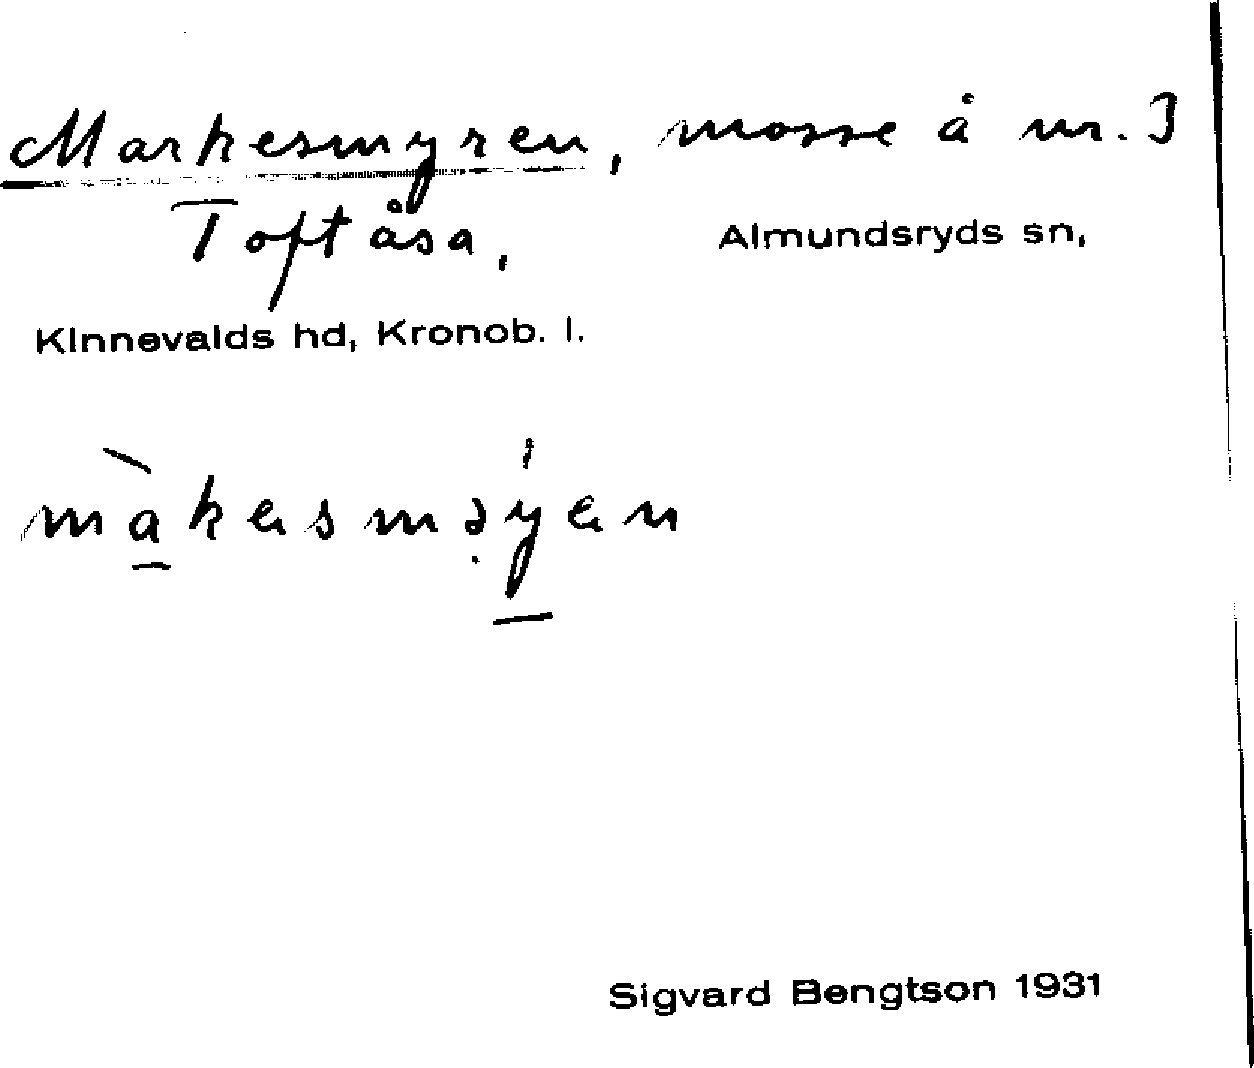 Markesmyren, mosse å nr. 3
Toftåsa, Almundsryds sn,
Kinnevalds hd, Kronob. l.
Sigvard Bengtson 1931